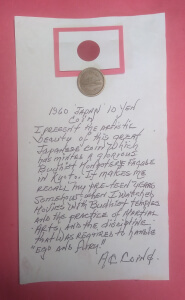 1960 JAPAN 10 YEN
COIN
I present the artistic
beauty of this great
Japanese coin which
has minted a glorious
Buddhist Monastery
in Kyoto. It makes me
recall my pre-teen years
when I watched
movies with Buddhist temples
and the practice of Martial
Arts, and the discipline
that was required to handle
"Ego and Anger."
A.C.